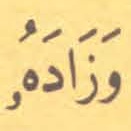 وَزَادَهُۥ